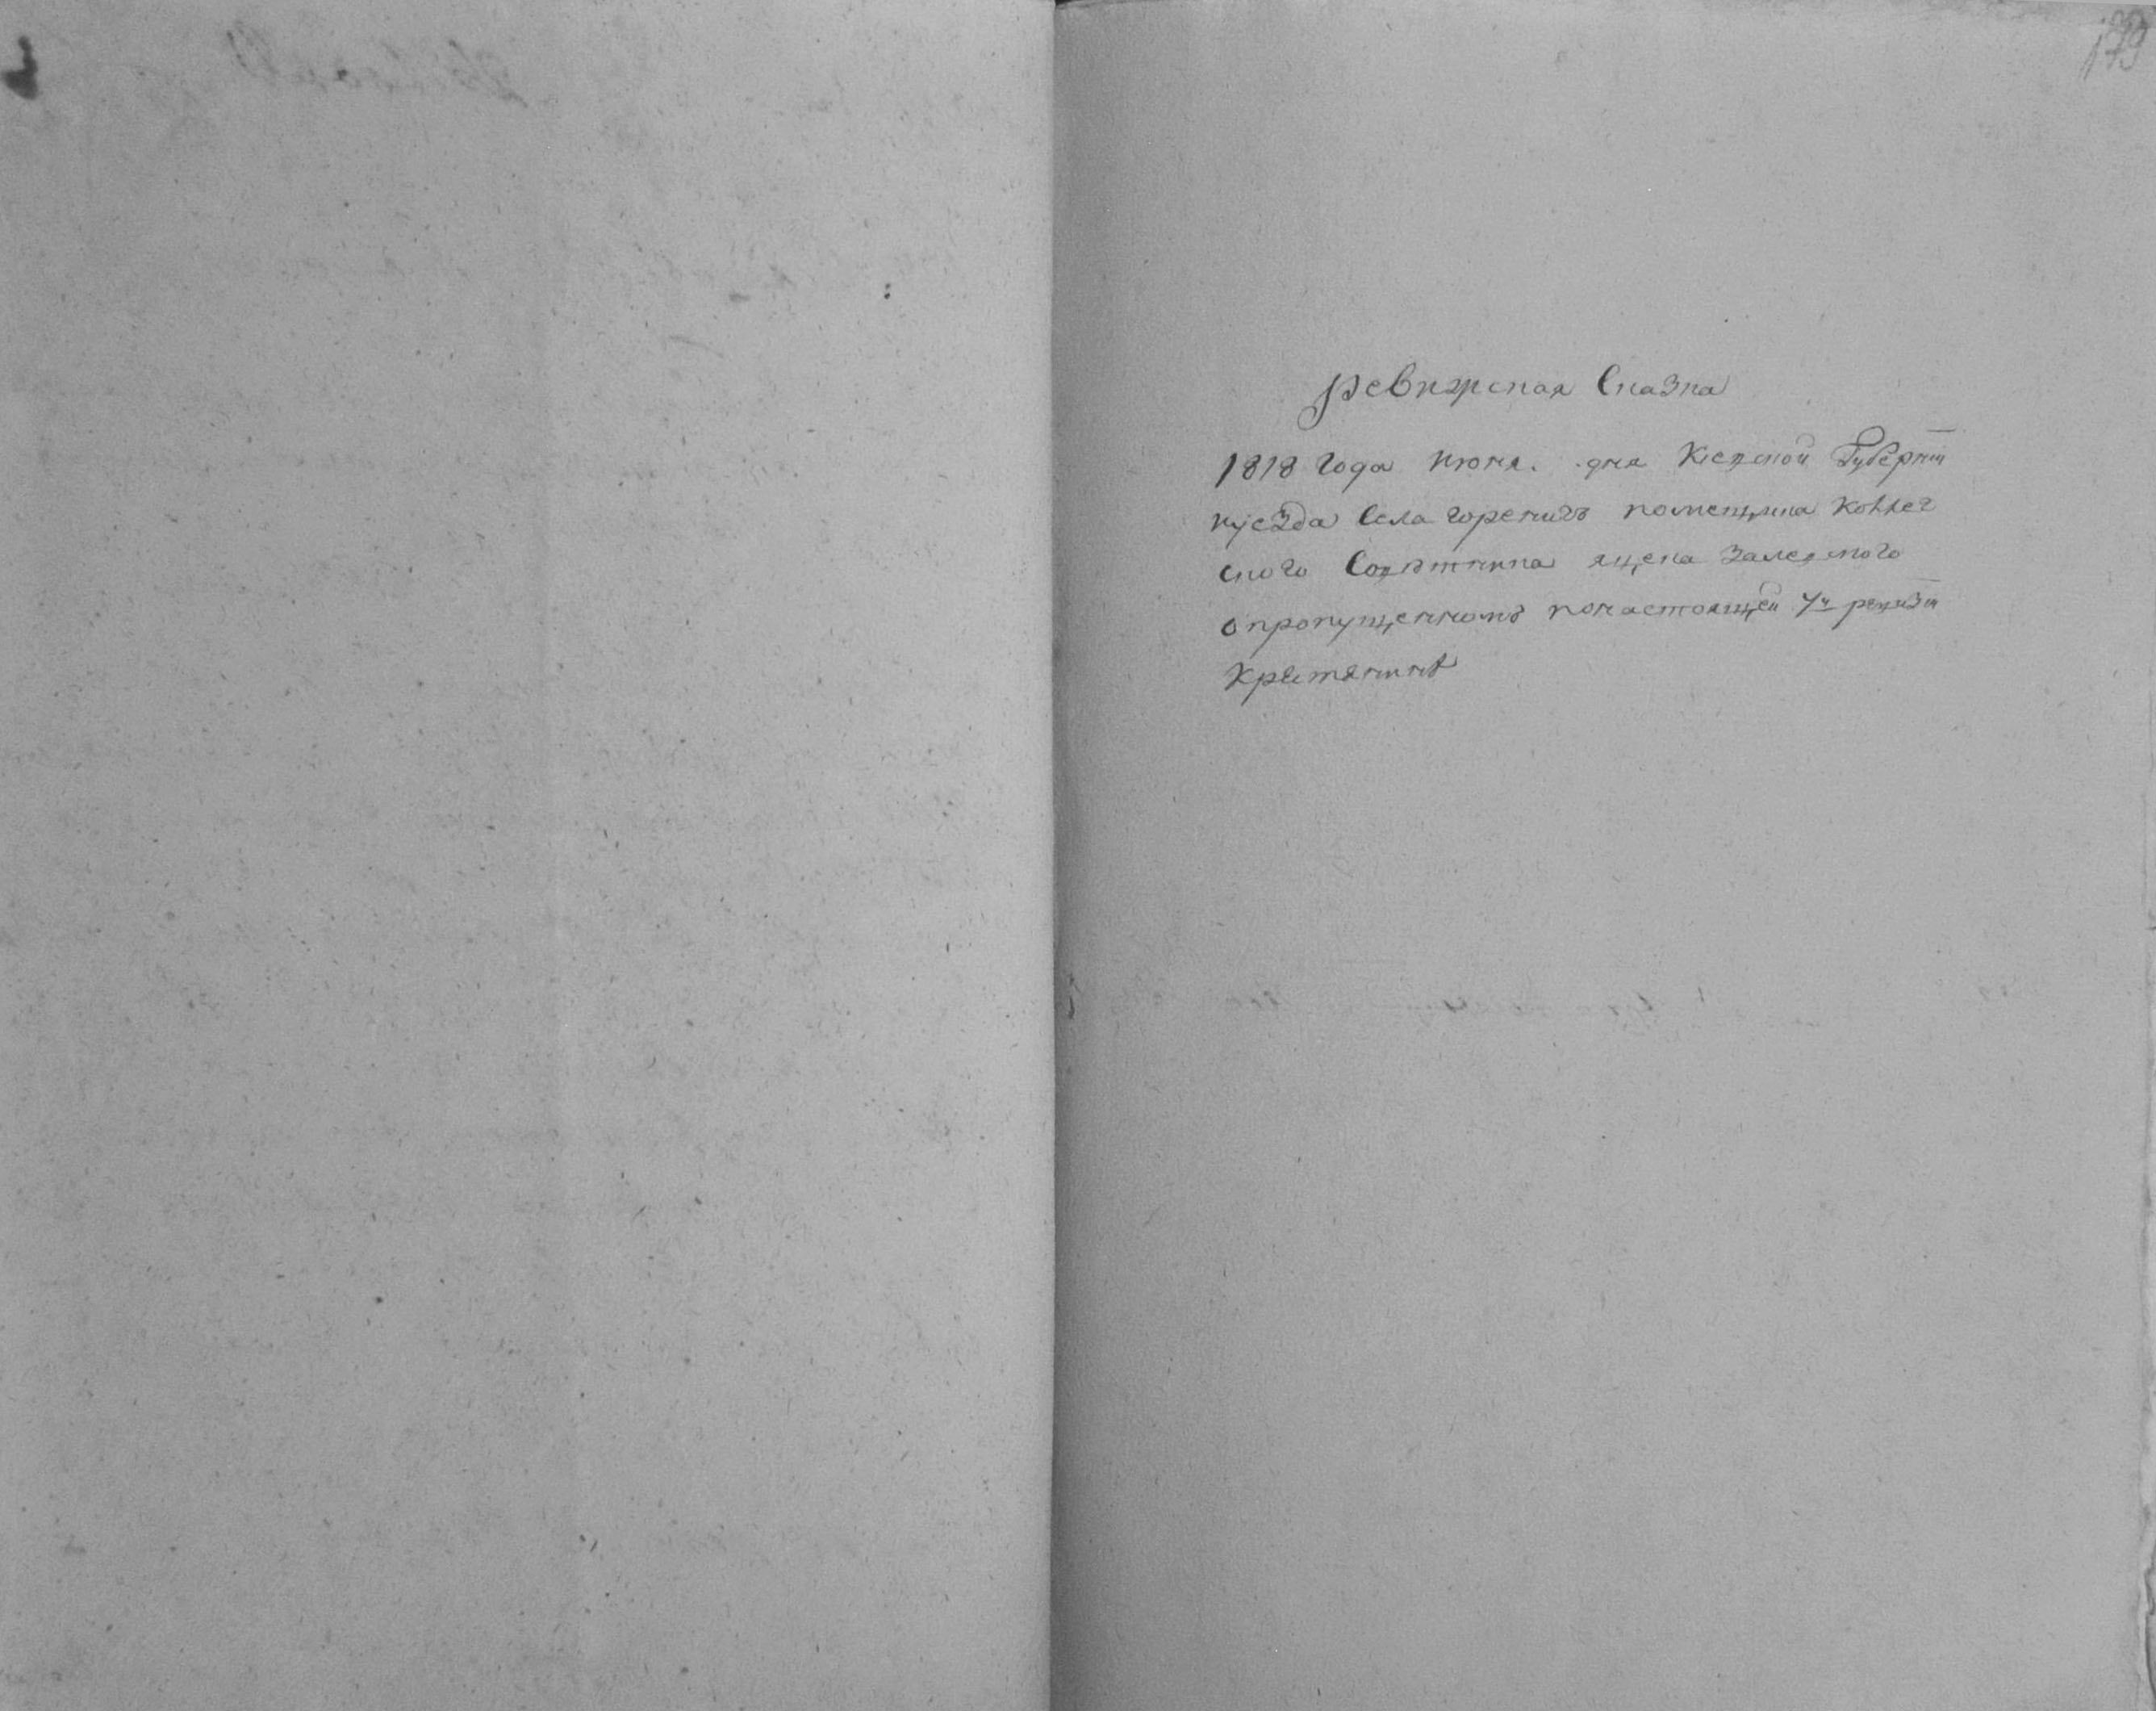 179
ревижская Сказка
1818 года июня. дня Киевской Губернии
иуезда Села гореничь помещика Коллег
ского Советника яцека Залеского
о пропущенномъ понастоящей 7й ревизии
Крестянинѣ